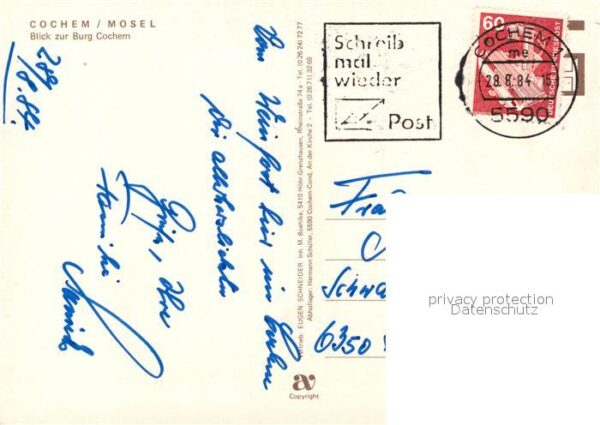 COCHEM / MOSEL
Blick zur Burg Cochem
28.
8.84
Vom Weinfest hier in Cochem
die allerherzlichsten
Grüße, Ihre
Familie
Vertrieb: EUGEN SCHNEIDER Inh. M. Boehlke, 5410 Höhr-Grenzhausen, Rheinstraße 74 a · Tel. (0 26 24) 72 77
Abhollager: Hermann Schüller, 5590 Cochem-Cond, An der Kirche 2 · Tel. (0 26 71) 32 68
Schreib
mal
wieder
Post
60
DEUTSCHE BUNDESPOST
COCHEM
me
28.8.84
5590
Schwa
6350
privacy protection
Datenschutz
av
Copyright